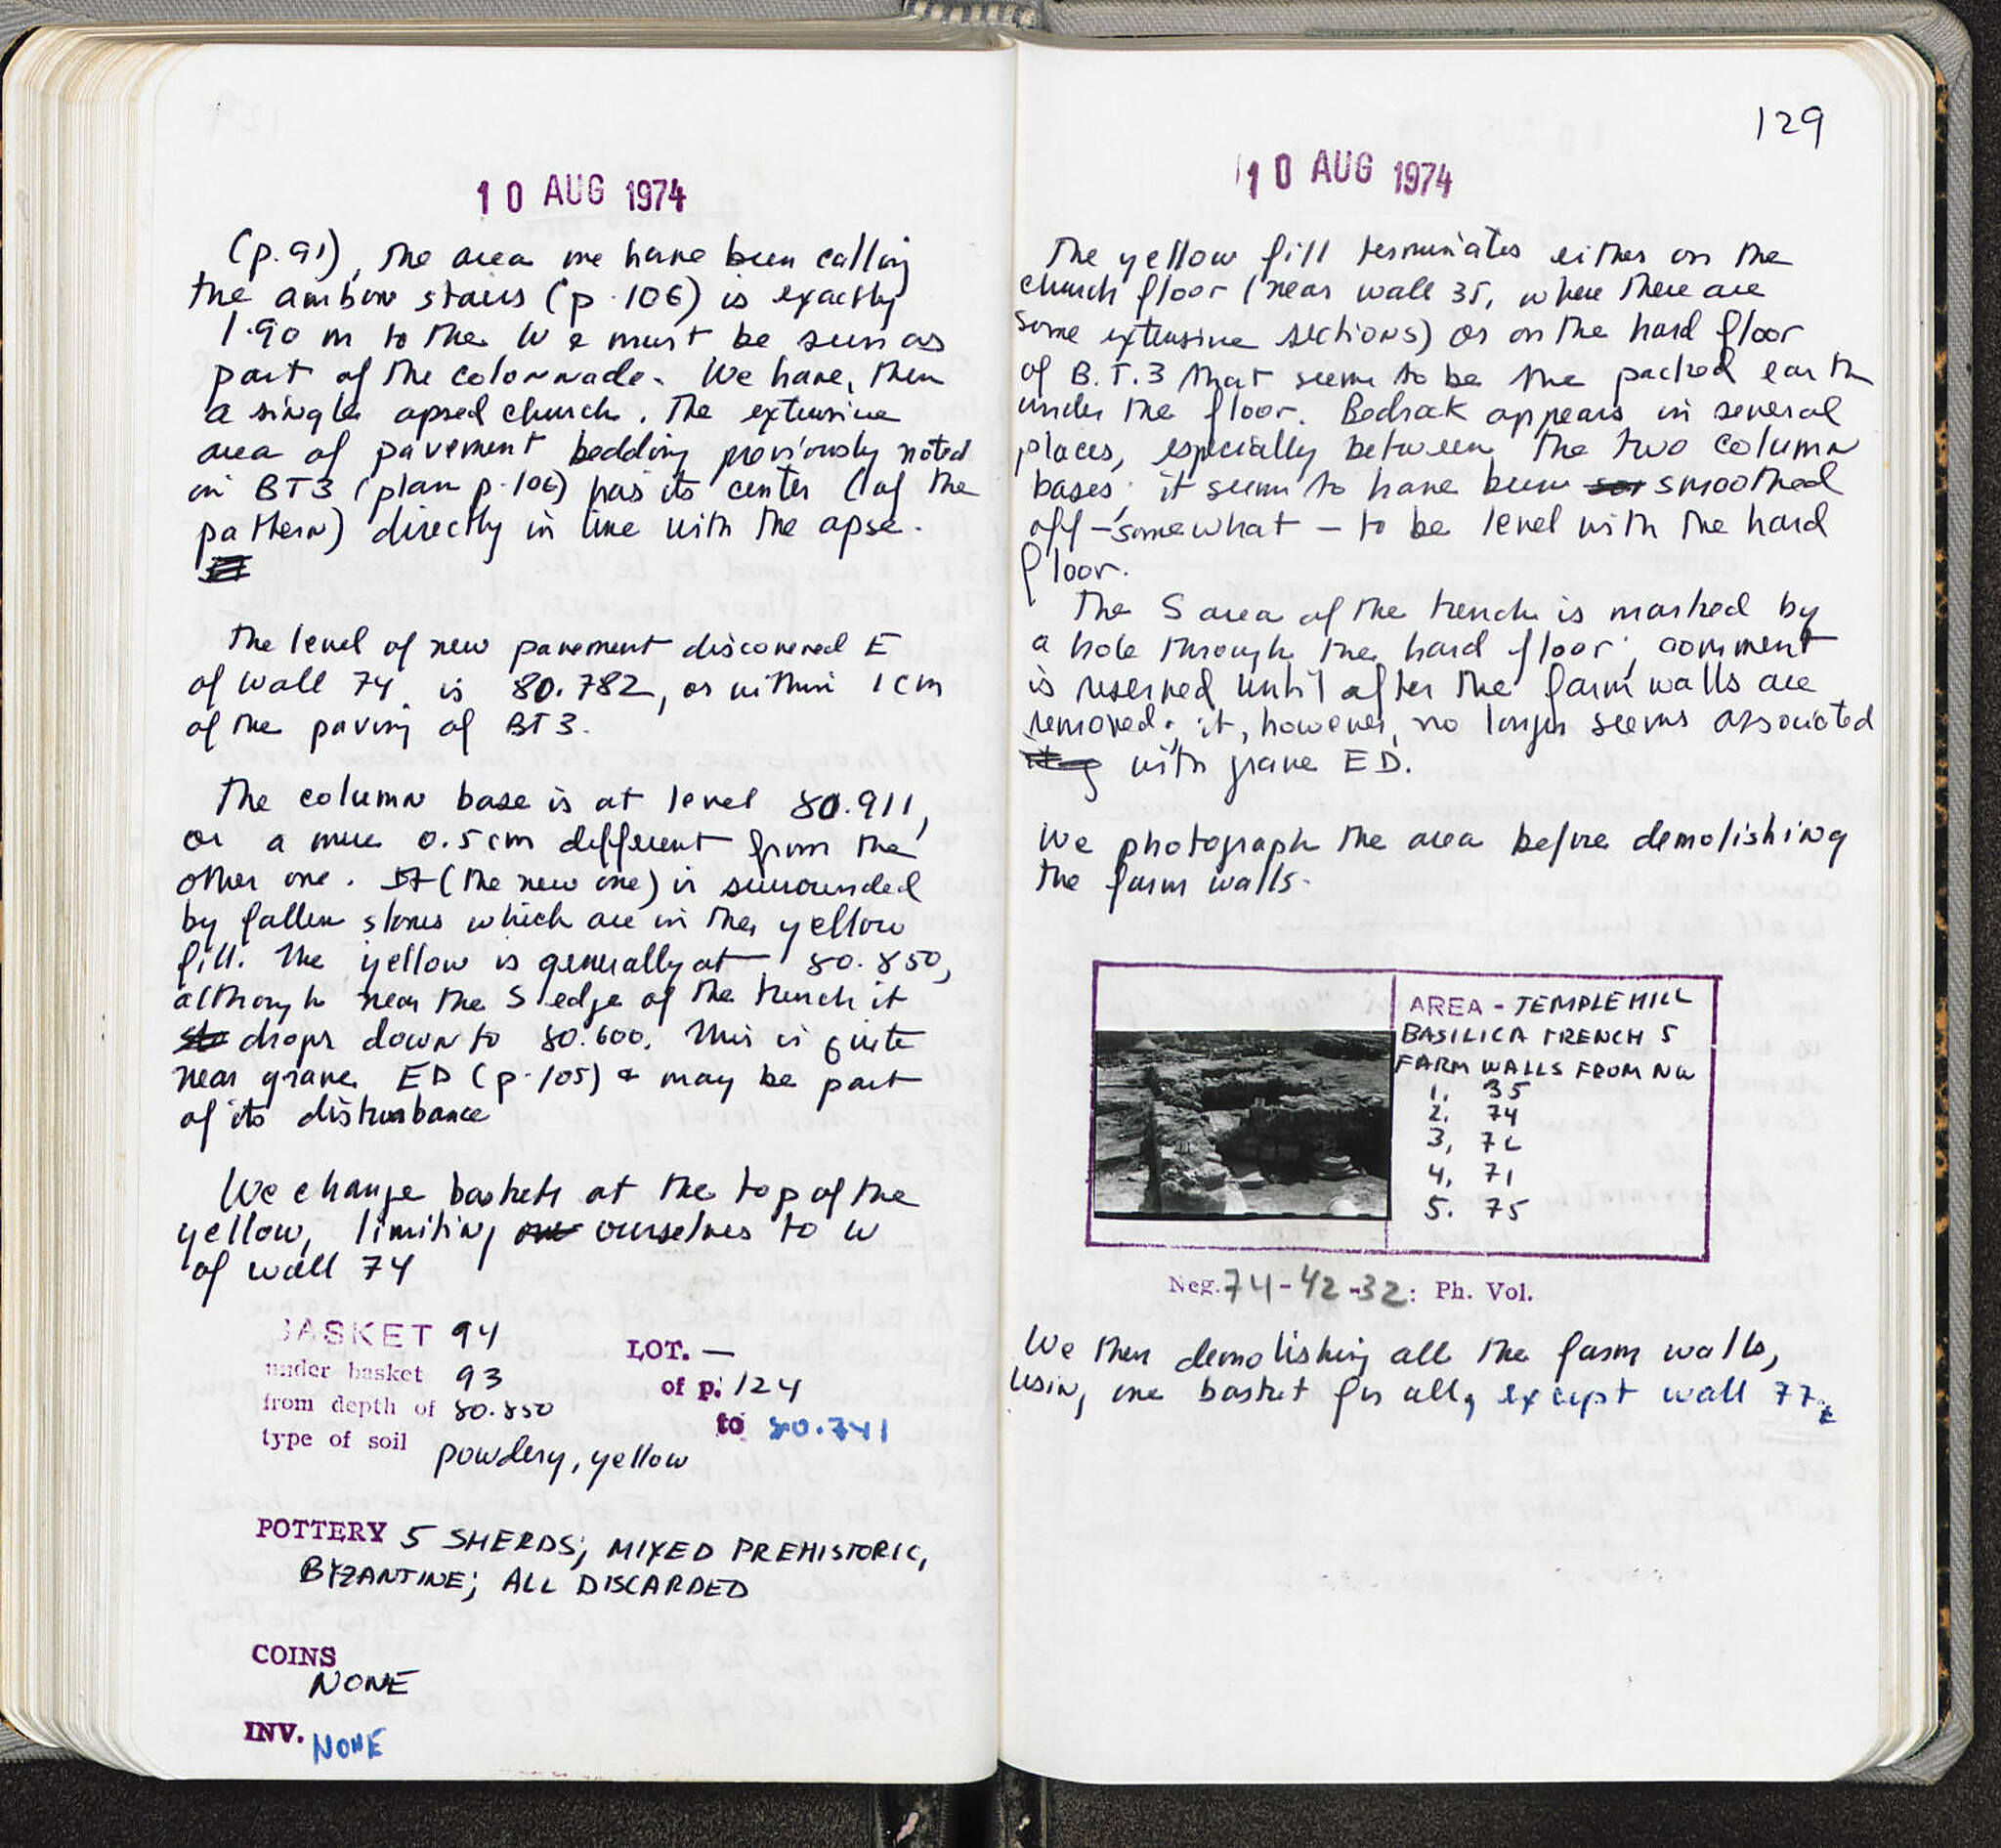 10 AUG 1974
(p.91), the area we have been calling
the ambon stairs (p.106) is exactly
1.90 m to the W & must be seen as
part of the colonnade. We have, then
a single apsed church. The extensive
area of pavement bedding previously noted
in BT3 (plan p.106) has its center (of the
pattern) directly in line with the apse.
The level of new pavement discovered E
of wall 74 is 80.782, or within 1cm
of the paving of BT3.
The column base is at level 80.911,
or a mere 0.5cm different from the
other one. It (the new one) is surrounded
by fallen stones which are in the yellow
fill. The yellow is generally at 80.850,
although near the S edge of the trench it
drops down to 80.600. This is quite
near grave ED (p.105) & may be part
of its disturbance
We change baskets at the top of the
yellow, limiting ourselves to W
of wall 74
BASKET 94
LOT. —
under basket 93
of p. 124
from depth of 80.850
to 80.741
type of soil powdery, yellow
POTTERY 5 SHERDS; MIXED PREHISTORIC,
BYZANTINE; ALL DISCARDED
COINS
NONE
INV. NONE
129
10 AUG 1974
The yellow fill terminates either on the
church floor (near wall 35, where there are
some extensive sections) or on the hard floor
of B.T.3 that seems to be the packed earth
under the floor. Bedrock appears in several
places, especially between the two column
bases; it seems to have been smoothed
off – somewhat – to be level with the hard
floor.
The S area of the trench is marked by
a hole through the hard floor; comment
is reserved until after the farm walls are
removed; it, however, no longer seems associated
with grave ED.
We photograph the area before demolishing
the farm walls.
AREA - TEMPLE HILL
BASILICA TRENCH 5
FARM WALLS FROM NW
1. 35
2. 74
3, 72
4, 71
5. 75
Neg. 74-42-32: Ph. Vol.
We then demolishing all the farm walls,
using one basket for all, except wall 77.